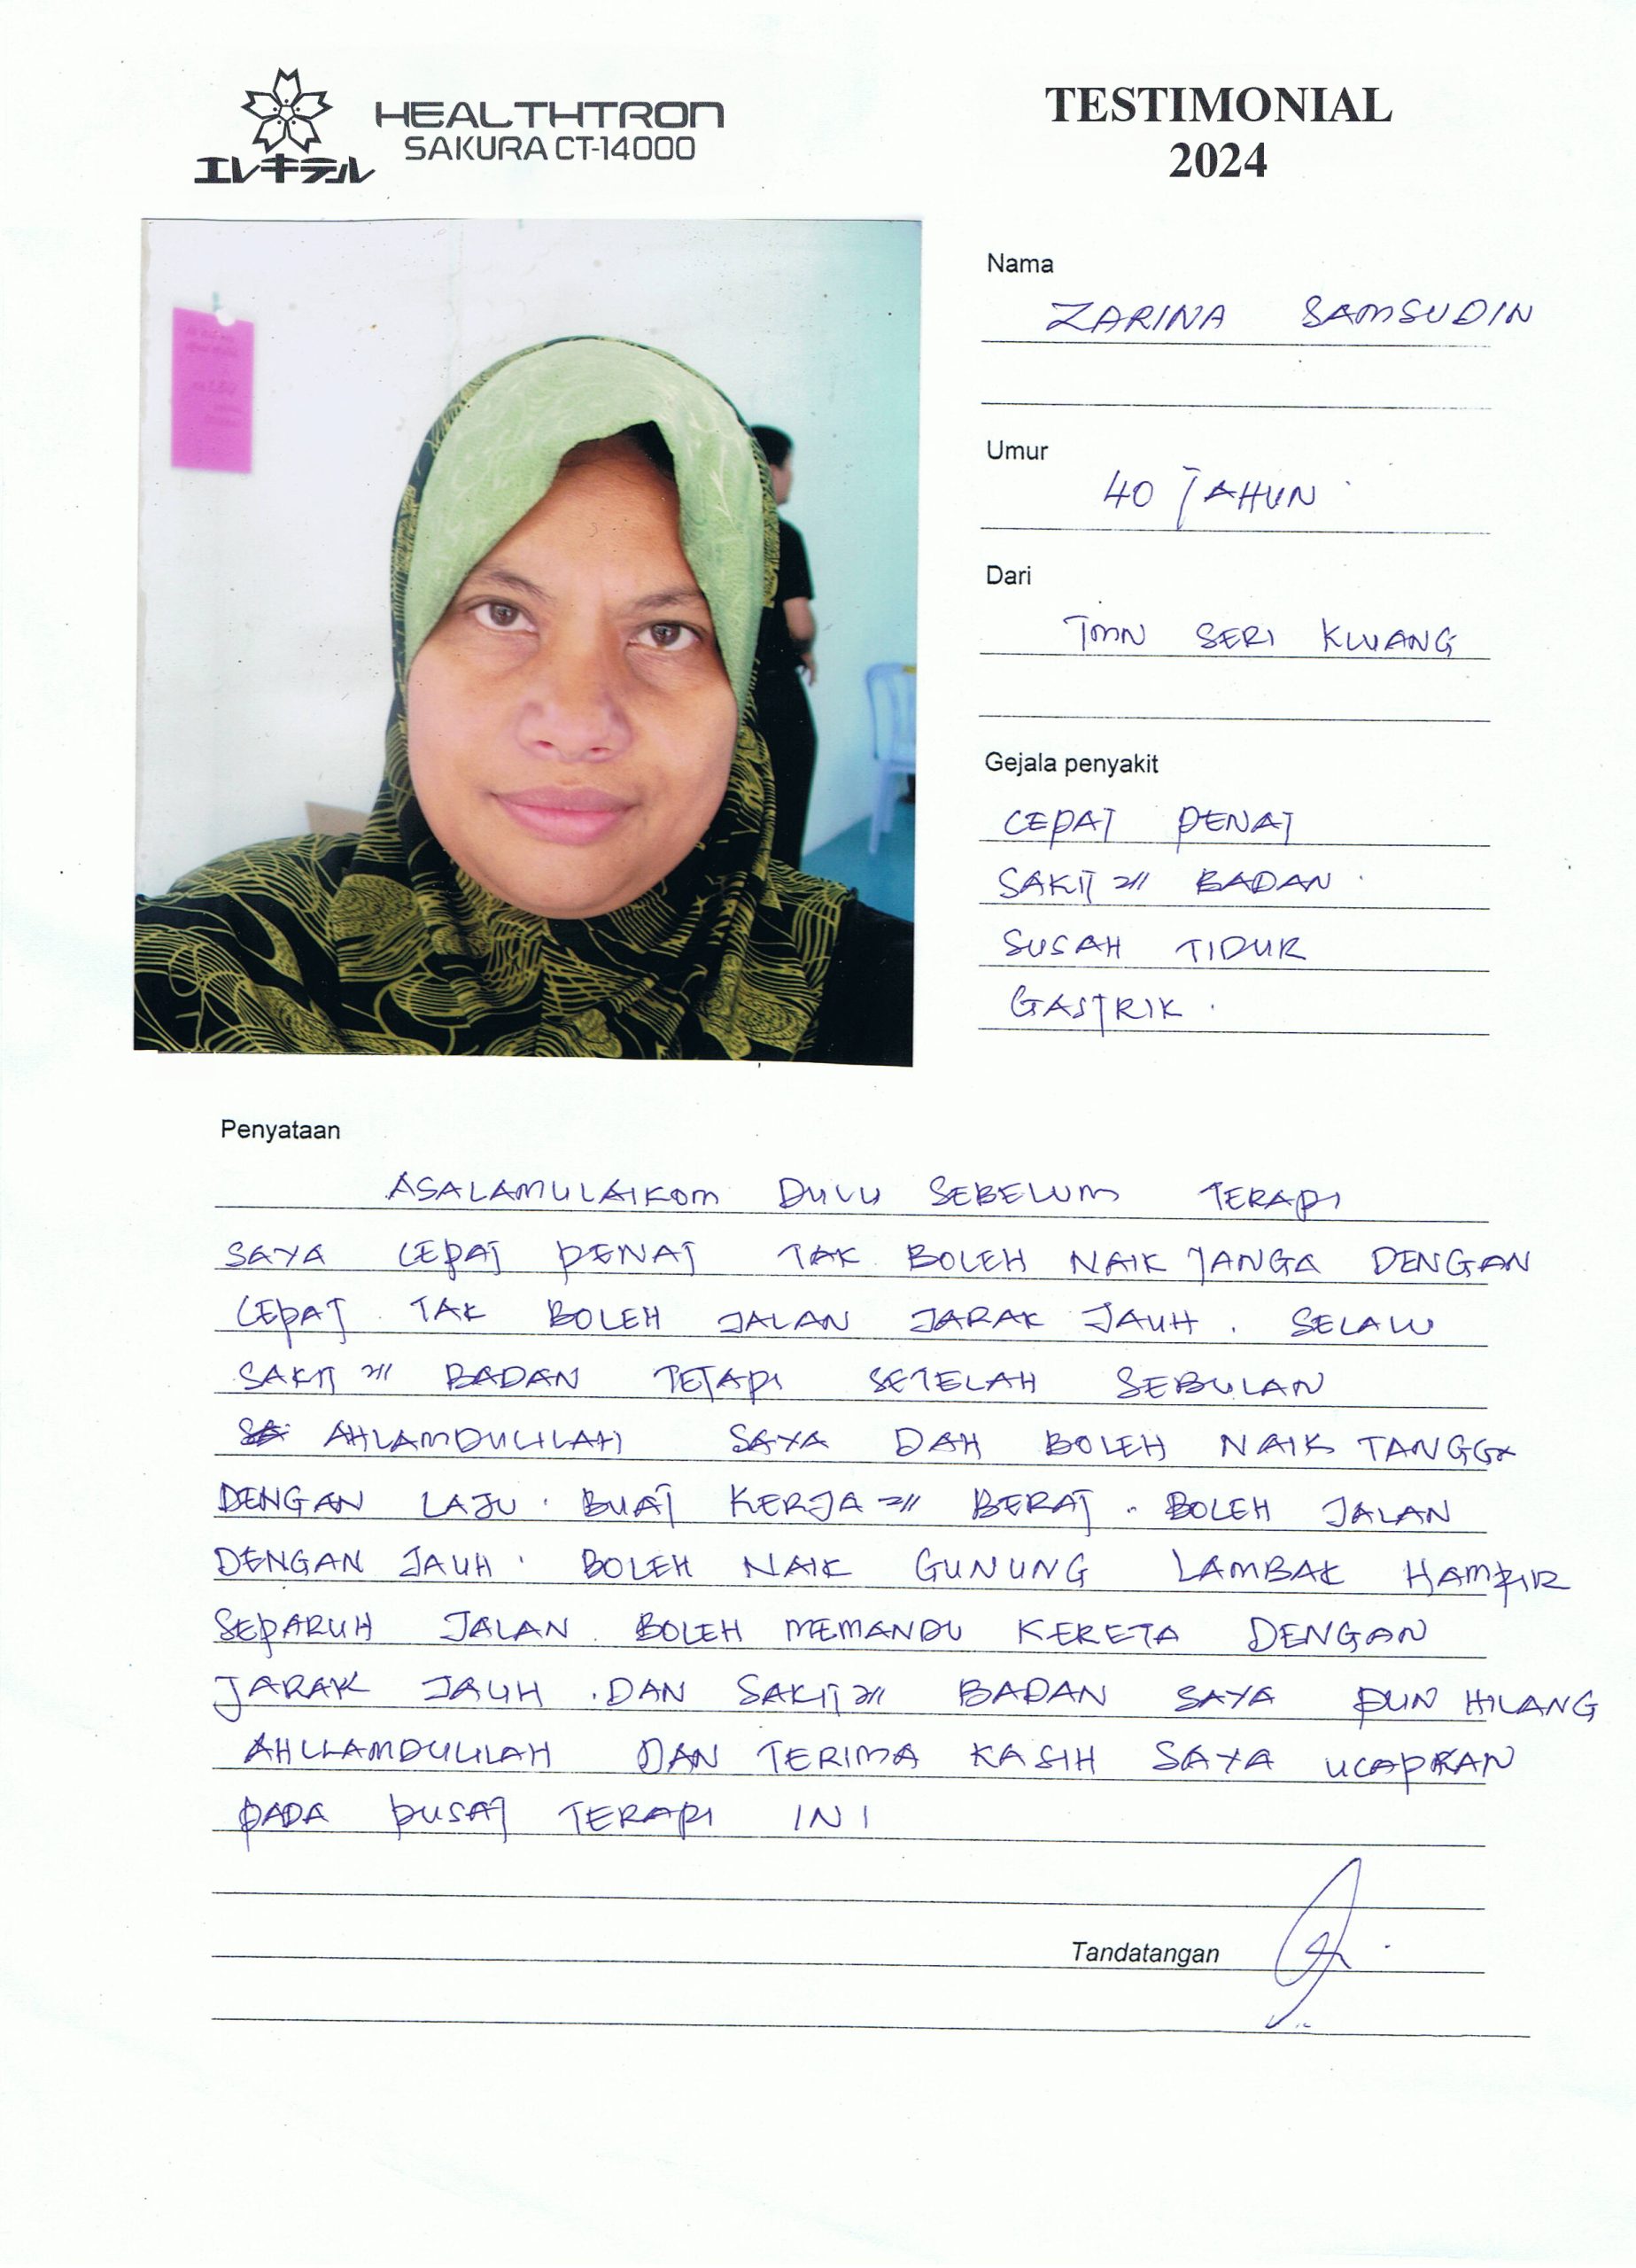 エレキテル
HEALTHTRON
SAKURA CT-14000
TESTIMONIAL
2024
Nama
ZARINA SAMSUDIN
Umur
40 TAHUN
Dari
TMN SERI KLUANG
Gejala penyakit
CEPAT PENAT
SAKIT2 BADAN
SUSAH TIDUR
GASTRIK.
Penyataan
ASALAMULAIKOM DULU SEBELUM TERAPI
SAYA CEPAT PENAT TAK BOLEH NAIK TANGA DENGAN
CEPAT TAK BOLEH JALAN JARAK JAUH. SELALU
SAKIT2 BADAN TETAPI SETELAH SEBULAN
AHLAMDULILAH SAYA DAH BOLEH NAIK TANGGA
DENGAN LAJU. BUAT KERJA2 BERAT. BOLEH JALAN
DENGAN JAUH. BOLEH NAIK GUNUNG LAMBAK HAMPIR
SEPARUH JALAN. BOLEH MEMANDU KERETA DENGAN
JARAK JAUH. DAN SAKIT2 BADAN SAYA PUN HILANG
AHLLAMDULILAH DAN TERIMA KASIH SAYA UCAPKAN
PADA PUSAT TERAPI INI
Tandatangan